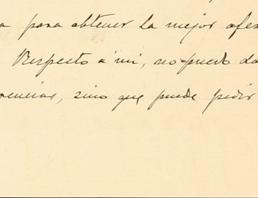 para obtener la mejor
Respecto á mi, no puedo
sino que puede pedir